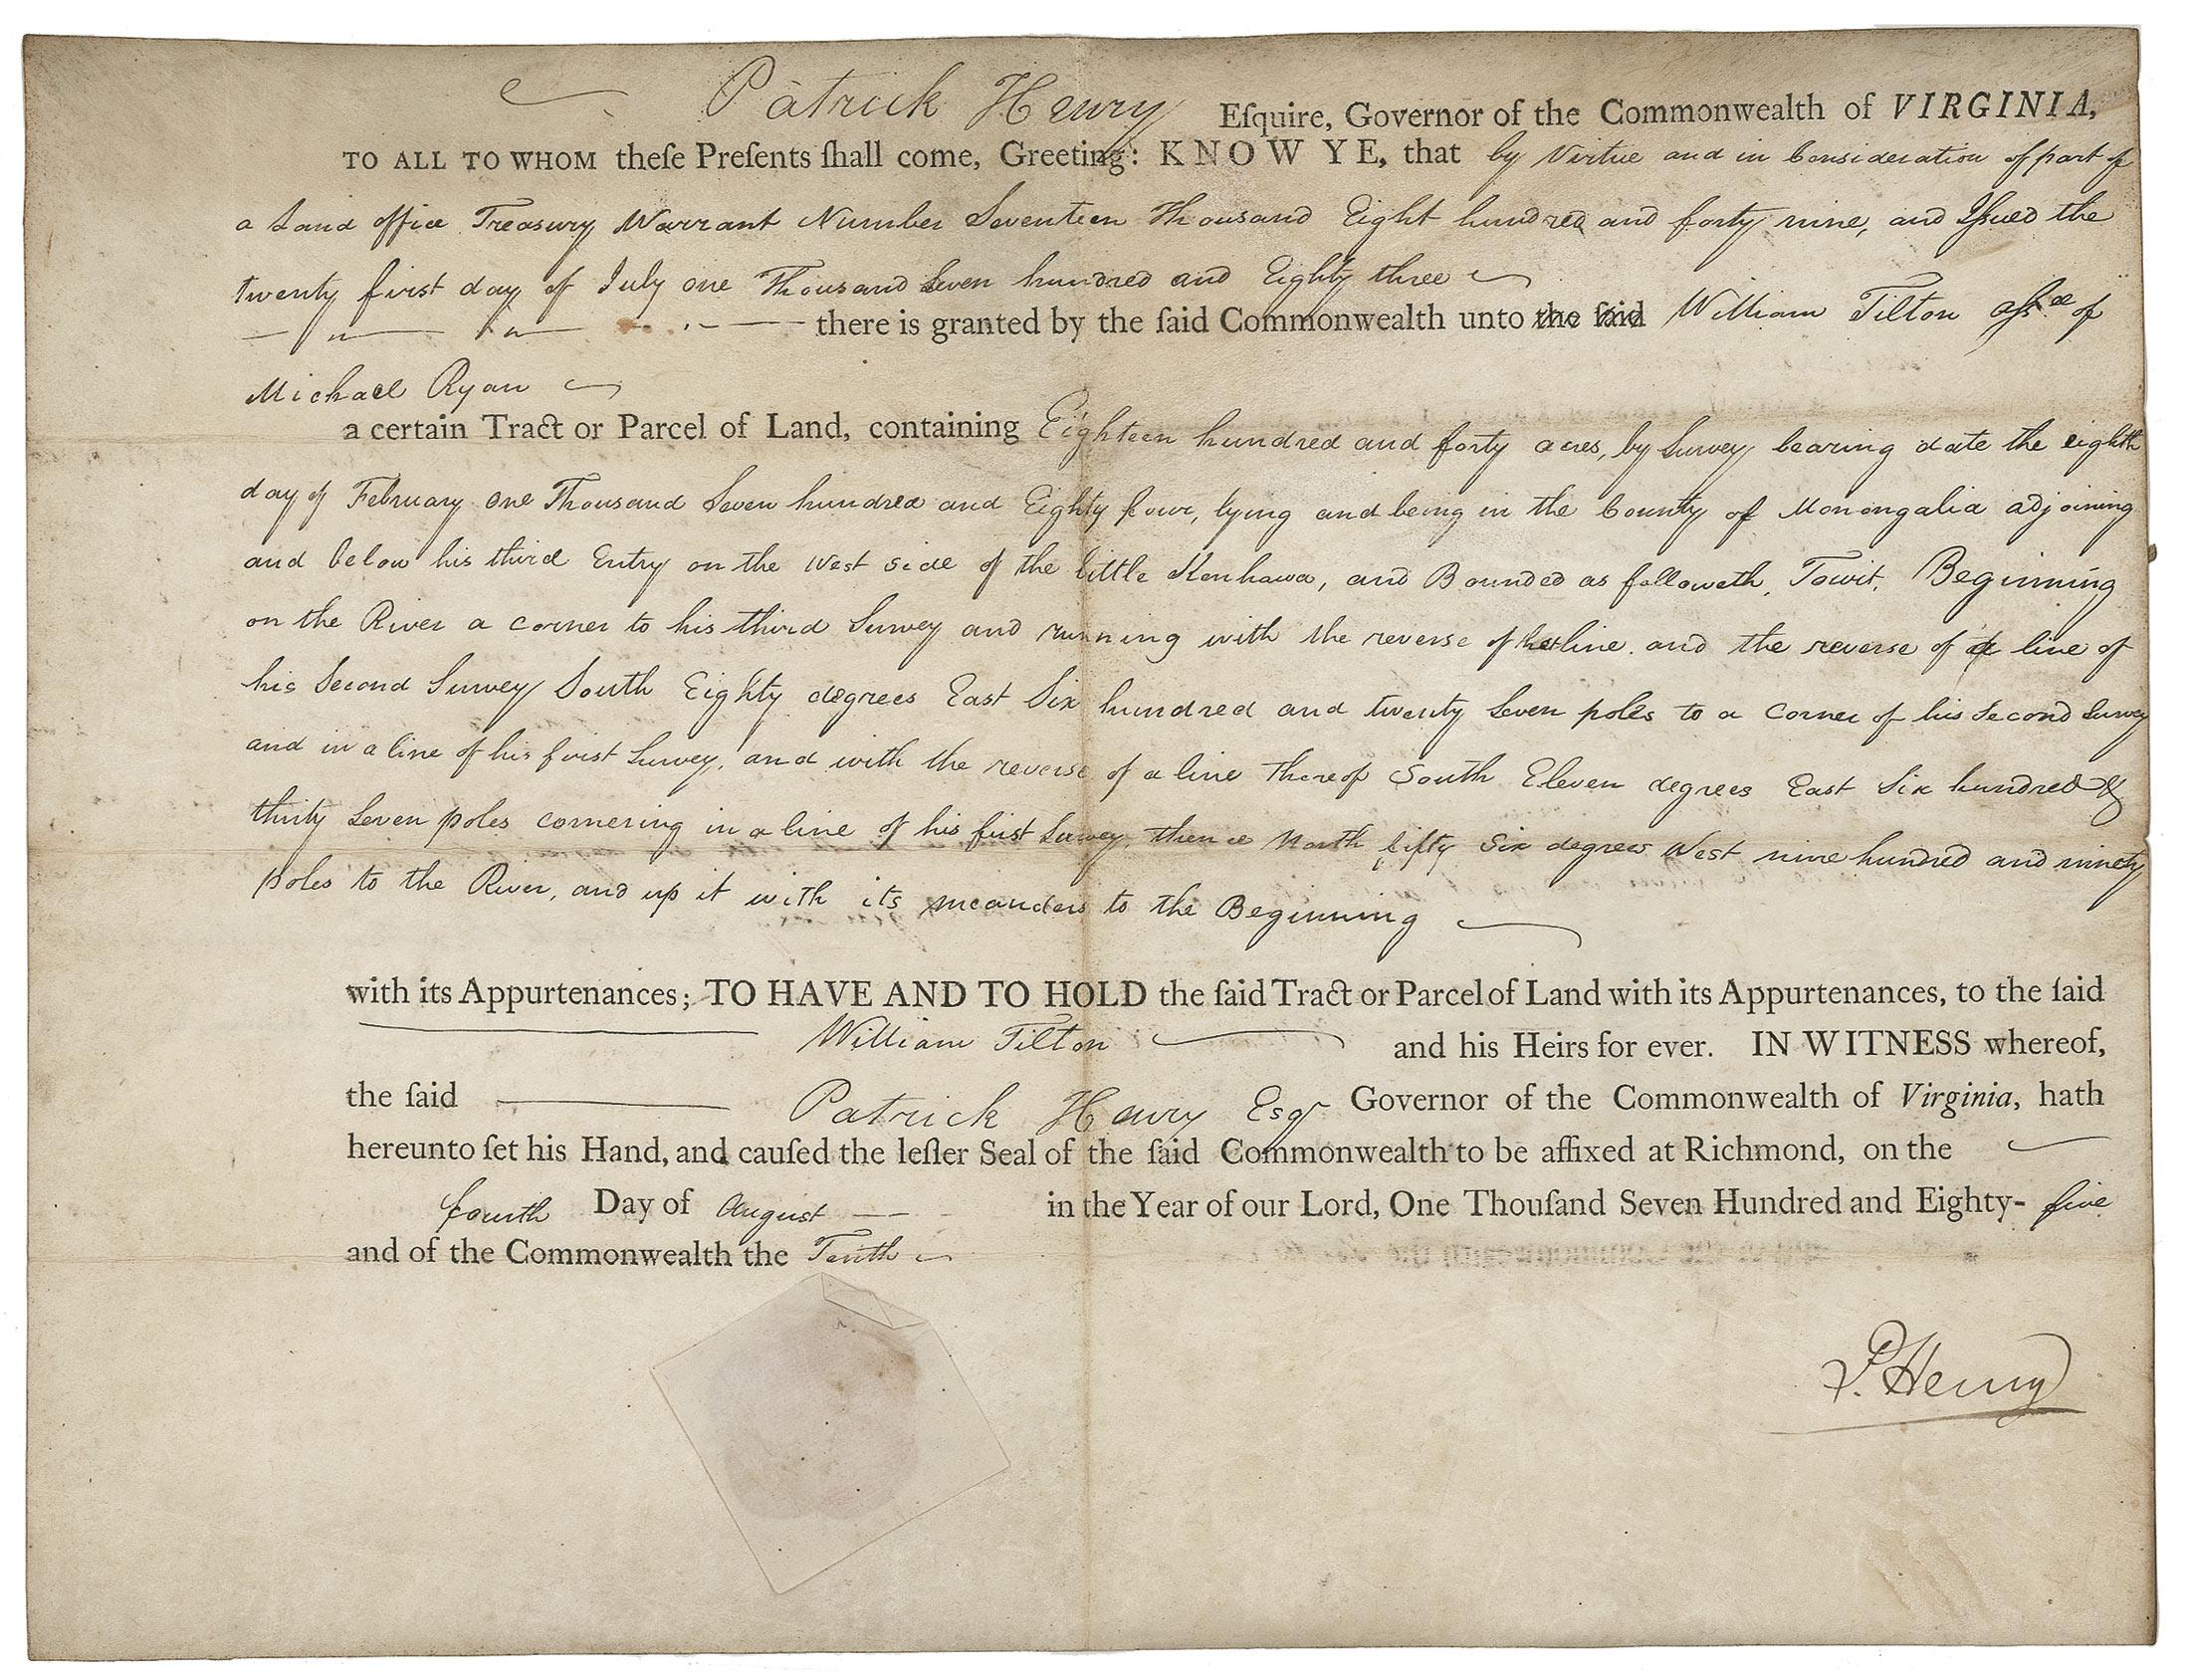 Patrick Henry Eſquire, Governor of the Commonwealth of VIRGINIA,
TO ALL TO WHOM theſe Preſents ſhall come, Greeting: KNOW YE, that by Virtue and in Consideration of part of
a Land office Treasury Warrant Number Seventeen Thousand Eight hundred and forty nine, and Issued the
twenty first day of July one Thousand Seven hundred and Eighty three
there is granted by the ſaid Commonwealth unto the ſaid William Tilton assee of
Michael Ryan
a certain Tract or Parcel of Land, containing Eighteen hundred and forty acres, by Survey bearing date the eighth
day of February one Thousand Seven hundred and Eighty four, lying and being in the County of Monongalia adjoining
and below his third Entry on the West side of the little Kenhawa, and Bounded as followeth, Towit, Beginning
on the River a corner to his third Survey and running with the reverse of line and the reverse of a line of
his Second Survey South Eighty degrees East Six hundred and twenty Seven poles to a Corner of his Second Survey
and in a line of his first Survey, and with the reverse of a line thereof South Eleven degrees East Six hundred &
thirty Seven poles cornering in a line of his first Survey, thence North fifty Six degrees West nine hundred and ninety
poles to the River, and up it with its meanders to the Beginning
with its Appurtenances; TO HAVE AND TO HOLD the ſaid Tract or Parcel of Land with its Appurtenances, to the ſaid
William Tilton and his Heirs for ever. IN WITNESS whereof,
the ſaid Patrick Henry Esqr Governor of the Commonwealth of Virginia, hath
hereunto ſet his Hand, and cauſed the leſſer Seal of the ſaid Commonwealth to be affixed at Richmond, on the
fourth Day of August in the Year of our Lord, One Thouſand Seven Hundred and Eighty- five
and of the Commonwealth the Tenth
P. Henry